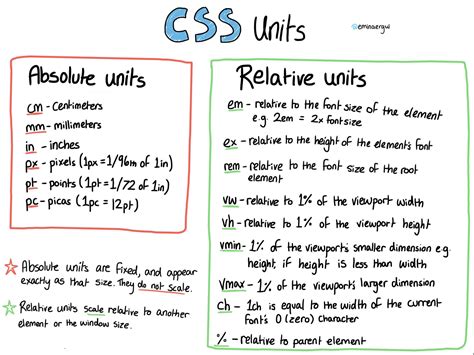 CSS Units
@eminaergui
Absolute units
cm - Centimeters
mm - millimeters
in - inches
px - pixels (1px = 1/96th of 1in)
pt - points (1pt = 1/72 of 1in)
pc - picas (1pc = 12pt)
Absolute units are fixed, and appear
exactly as that size. They do not scale.
Relative units scale relative to another
element or the window size.
Relative units
em - relative to the font size of the element
e.g. 2em = 2x font size
ex - relative to the height of the element's font
rem - relative to the font size of the root
element
vw - relative to 1% of the viewport width
vh - relative to 1% of the viewport height
vmin - 1% of the viewport's smaller dimension e.g.
height, if height is less than width
vmax - 1% of the viewport's larger dimension
ch - 1ch is equal to the width of the current
font's 0 (zero) character
% - relative to parent element